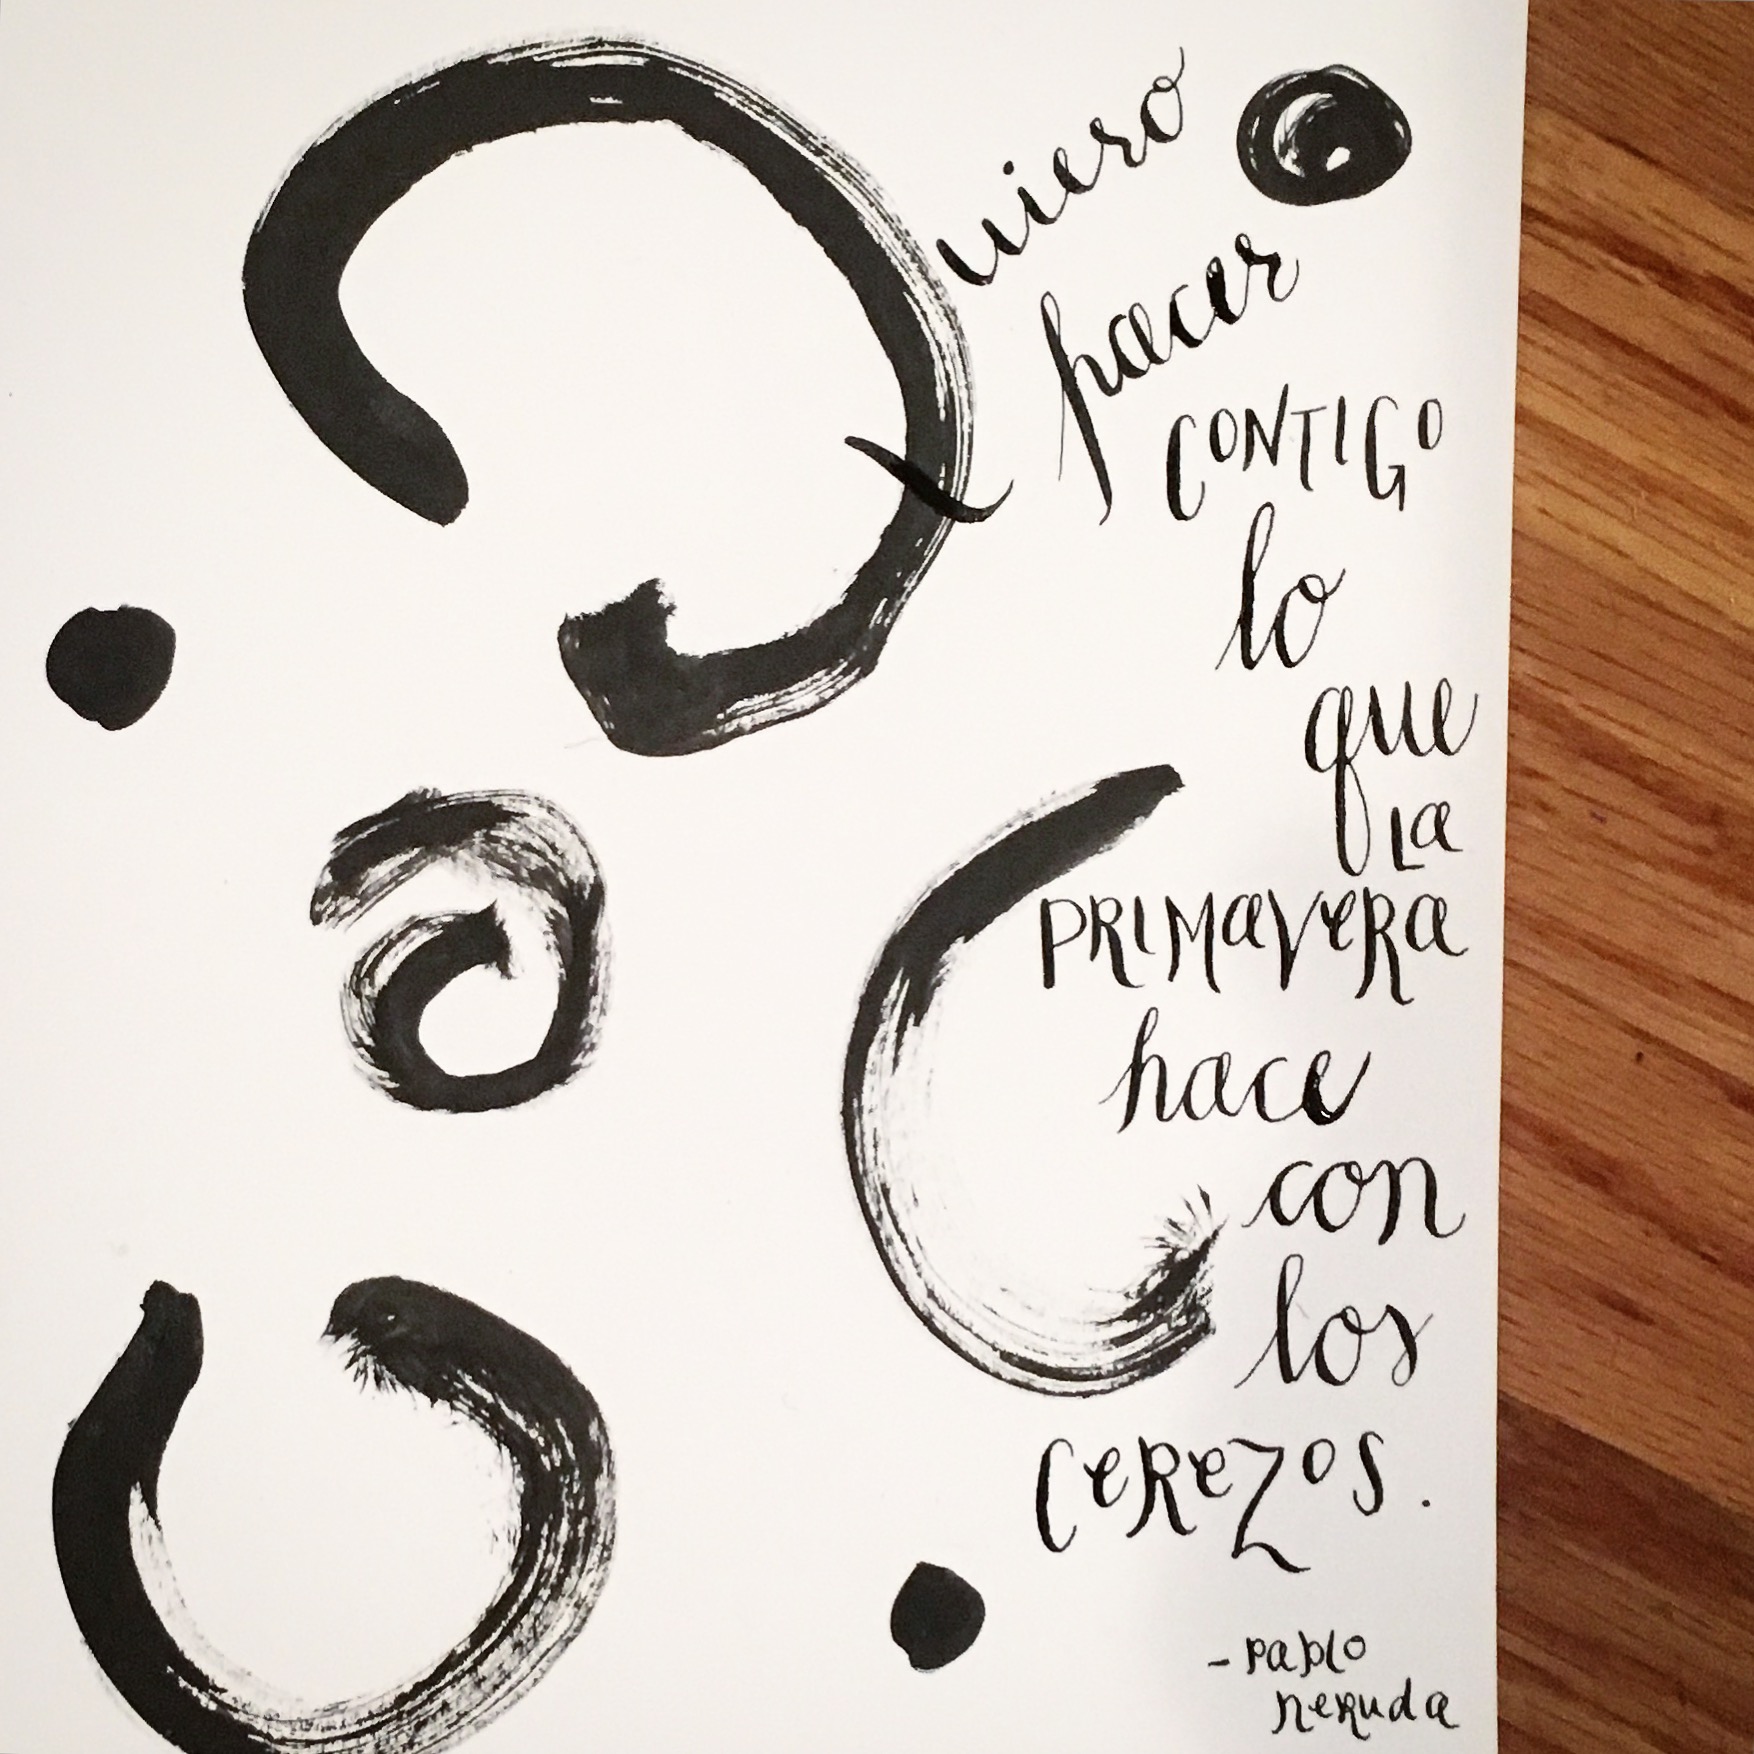 Quiero
hacer
CONTIGO
lo
que
La
PRIMaVeRa
hace
con
los
CeReZOS.
- Pablo
NeRuda